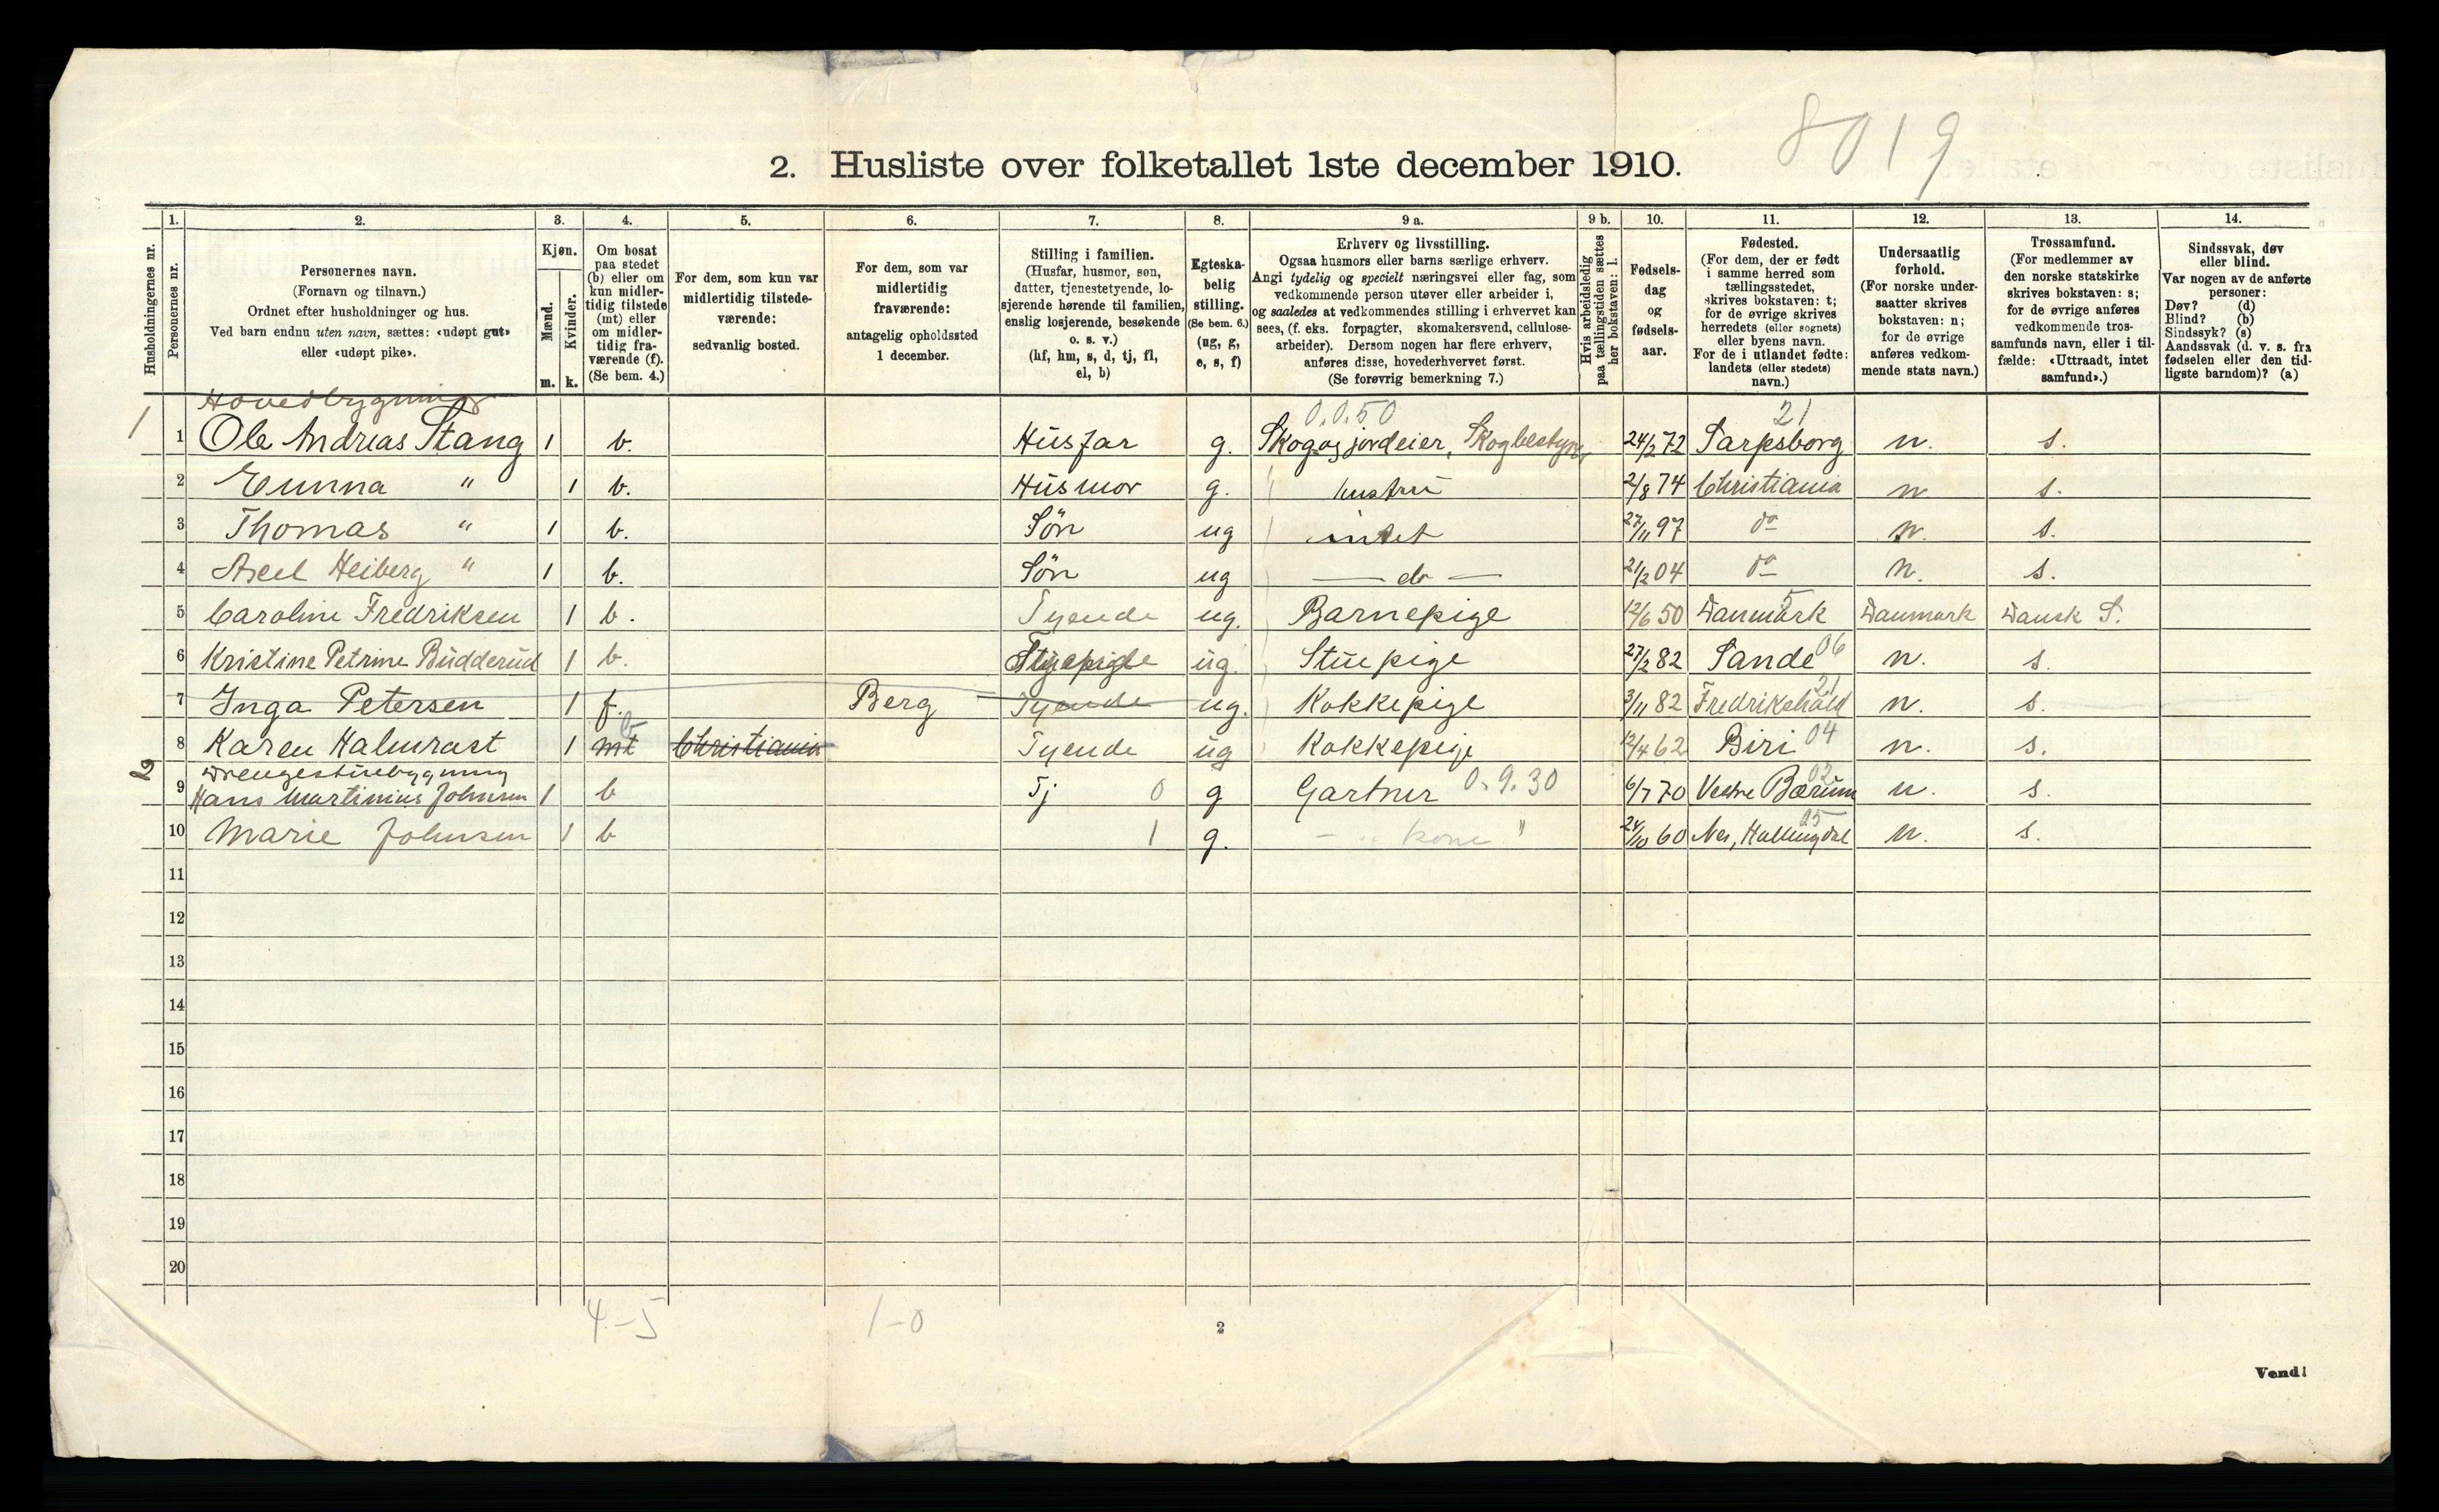 8019
2. Husliste over folketallet 1ste december 1910.
1. 2. 3. 4. 5. 6. 7. 8. 9 a. 9 b. 10. 11. 12. 13. 14.
Husholdningernes nr.
Personernes nr.
Personernes navn.
(Fornavn og tilnavn.)
Ordnet efter husholdninger og hus.
Ved barn endnu uten navn, sættes: «udøpt gut»
eller «udøpt pike».
Kjøn.
Mænd.
Kvinder.
m. k.
Om bosat
paa stedet
(b) eller om
kun midler-
tidig tilstede
(mt) eller
om midler-
tidig fra-
værende (f).
(Se bem. 4.)
For dem, som kun var
midlertidig tilstede-
værende:
sedvanlig bosted.
For dem, som var
midlertidig
fraværende:
antagelig opholdssted
1 december.
Stilling i familien.
(Husfar, husmor, søn,
datter, tjenestetyende, lo-
sjerende hørende til familien,
enslig losjerende, besøkende
o. s. v.)
(hf, hm, s, d, tj, fl,
el, b)
Egteska-
belig
stilling.
(Se bem. 6.)
(ug, g,
e, s, f)
Erhverv og livsstilling.
Ogsaa husmors eller barns særlige erhverv.
Angi tydelig og specielt næringsvei eller fag, som
vedkommende person utøver eller arbeider i,
og saaledes at vedkommendes stilling i erhvervet kan
sees, (f. eks. forpagter, skomakersvend, cellulose-
arbeider). Dersom nogen har flere erhverv,
anføres disse, hovederhvervet først.
(Se forøvrig bemerkning 7.)
Hvis arbeidsledig
paa tællingstiden sættes
her bokstaven: l.
Fødsels-
dag
og
fødsels-
aar.
Fødested.
(For dem, der er født
i samme herred som
tællingsstedet,
skrives bokstaven: t;
for de øvrige skrives
herredets (eller sognets)
eller byens navn.
For de i utlandet fødte:
landets (eller stedets)
navn.)
Undersaatlig
forhold.
(For norske under-
saatter skrives
bokstaven: n;
for de øvrige
anføres vedkom-
mende stats navn.)
Trossamfund.
(For medlemmer av
den norske statskirke
skrives bokstaven: s;
for de øvrige anføres
vedkommende tros-
samfunds navn, eller i til-
fælde: «Uttraadt, intet
samfund».)
Sindssvak, døv
eller blind.
Var nogen av de anførte
personer:
Døv? (d)
Blind? (b)
Sindssyk? (s)
Aandssvak (d. v. s. fra
fødselen eller den tid-
ligste barndom)? (a)
Hovedbygning 0.0.50 21
1 1 Ole Andreas Stang 1 b. Husfar g. Skog og jordeier, Skogbestyrer 24/2 72 Sarpsborg n. s.
2 Emma " 1 b. Husmor g. hustru 2/8 74 Christiania n s.
3 Thomas " 1 b. Søn ug intet 27/11 97 do n. s.
4 Axel Heiberg " 1 b. Søn ug — do — 21/2 04 do n. s.
5 Caroline Fredriksen 1 b. Tyende ug. Barnepige 12/6 50 Danmark 5 Danmark Dansk S.
6 Kristine Petrine Budderud 1 b. Tyende ug. Stuepige 27/2 82 Sande 06 n. s.
7 Inga Petersen 1 f. Berg Tyende ug. Kokkepige 3/11 82 Fredrikshald 21 n. s.
8 Karen Halmrast 1 mt b Christiania Tyende ug Kokkepige 12/4 62 Biri 04 n. s.
2 Drengestuebygning
9 Hans Martinius Johnsen 1 b Tj 0 g Gartner 0.9.30 6/7 70 Vestre Bærum 02 n. s.
10 Marie Johnsen 1 b 1 g. - " kone " 24/10 60 Nes, Hallingdal 05 n. s.
11
12
13
14
15
16
17
18
19
20
4-5 1-0
2
Vend!